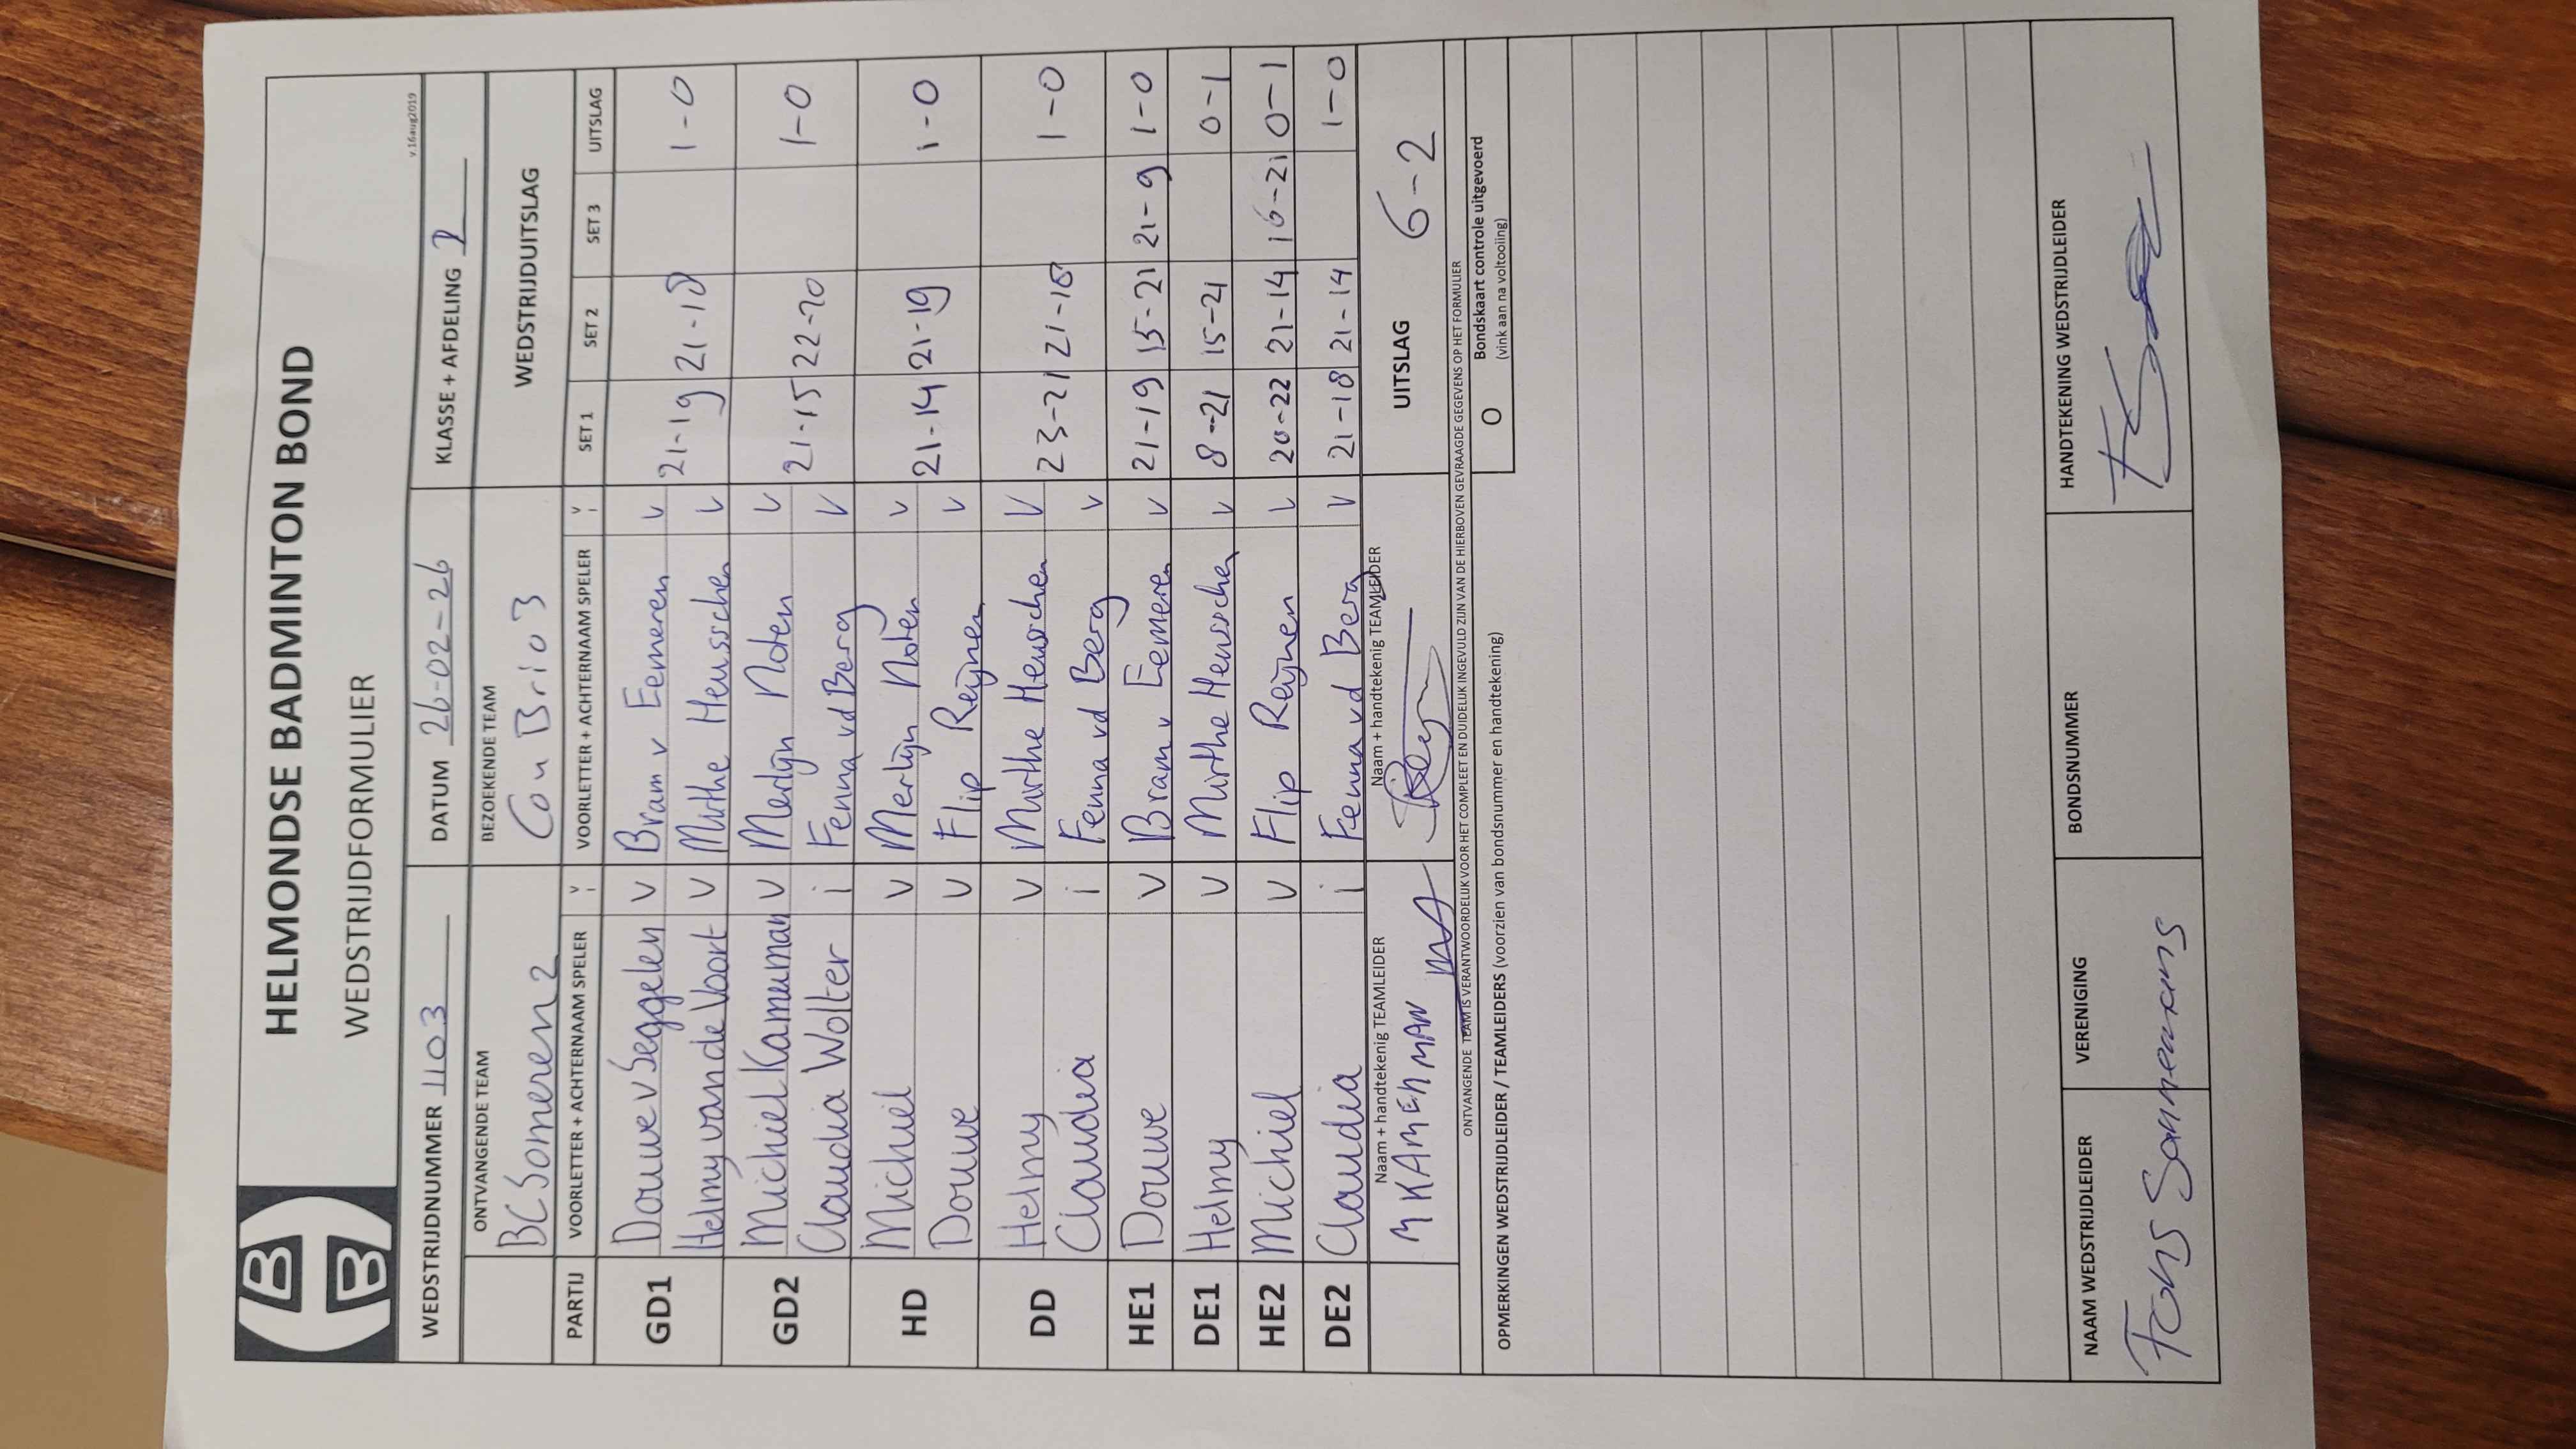 HELMONDSE BADMINTON BOND
WEDSTRIJDFORMULIER
v.16aug2019
WEDSTRIJDNUMMER 1103 DATUM 26-02-26 KLASSE + AFDELING
ONTVANGENDE TEAM BEZOEKENDE TEAM WEDSTRIJDUITSLAG
BC Someren 2 Con Brio 3
PARTIJ VOORLETTER + ACHTERNAAM SPELER V i VOORLETTER + ACHTERNAAM SPELER V i SET 1 SET 2 SET 3 UITSLAG
GD1 Douwe v Seggelen V Bram v Eemeren V 21-19 21-18 1-0
Helmy van de Voort V Mirthe Heusschen V
GD2 Michiel Kamerman V Merlijn Noten V 21-15 22-20 1-0
Claudia Wolter i Fenna vd Berg V
HD Michiel V Merlijn Noten V 21-14 21-19 1-0
Douwe V Flip Reijnen V
DD Helmy V Mirthe Heusschen V 23-21 21-18 1-0
Claudia i Fenna vd Berg V
HE1 Douwe V Bram v Eemeren V 21-19 15-21 21-9 1-0
DE1 Helmy V Mirthe Heusschen V 8-21 15-21 0-1
HE2 Michiel V Flip Reijnen V 20-22 21-14 16-21 0-1
DE2 Claudia i Fenna vd Berg V 21-18 21-14 1-0
Naam + handtekenig TEAMLEIDER Naam + handtekenig TEAMLEIDER UITSLAG 6-2
M KAMERMAN
ONTVANGENDE TEAM IS VERANTWOORDELIJK VOOR HET COMPLEET EN DUIDELIJK INGEVULD ZIJN VAN DE HIERBOVEN GEVRAAGDE GEGEVENS OP HET FORMULIER
OPMERKINGEN WEDSTRIJDLEIDER / TEAMLEIDERS (voorzien van bondsnummer en handtekening) O Bondskaart controle uitgevoerd
(vink aan na voltooiing)
NAAM WEDSTRIJDLEIDER VERENIGING BONDSNUMMER HANDTEKENING WEDSTRIJDLEIDER
Fons